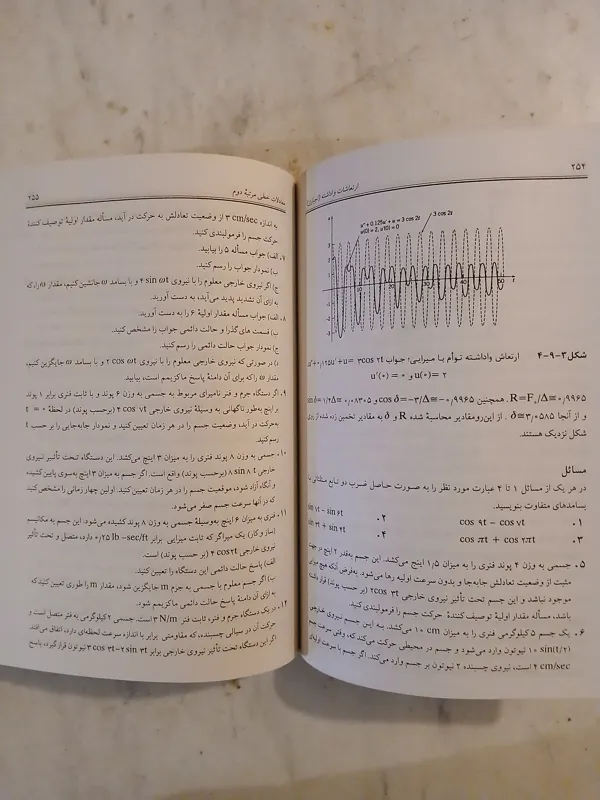 ۲۵۴
ارتعاشات واداشته (اجباری)
u
u'' + 0.125u' + u = 3 cos 2t
u(0) = 2, u'(0) = 0
3 cos 2t
t
شکل ۳-۹-۴ ارتعاش واداشته توأم با میرایی؛ جواب u''+۰٫۱۲۵u'+u= ۳cos ۲t
u'(۰) = ۰ و u(۰)= ۲
R=F₀/Δ≅۰٫۹۹۶۵ . همچنین cos δ=-۳/Δ≅-۰٫۹۹۶۵ و
و از آنجا δ≅۳٫۰۵۸۵ . از این‌رو مقادیر محاسبهٔ شده R و δ به مقادیر تخمین زده شده از روی
شکل نزدیک هستند.
مسائل
در هر یک از مسائل ۱ تا ۴ عبارت مورد نظر را به صورت حاصل ضرب دو تابع مثلثاتی با
بسامدهای متفاوت بنویسید.
۱. cos ۹t − cos ۷t ۲. sin ۷t − sin ۶t
۳. cos πt + cos ۲πt ۴. sin ۳t + sin ۴t
۵. جسمی به وزن ۴ پوند فنری را به میزان ۱٫۵ اینچ می‌کشد. این جسم به‌قدر ۲ اینچ در جهت
مثبت از وضعیت تعادلش جابه‌جا و بدون سرعت اولیه رها می‌شود. به‌فرض آنکه هیچ میرای
موجود نباشد و این جسم تحت تأثیر نیروی خارجی ۲cos ۳t (بر حسب پوند) قرار داشته
باشد، مسأله مقدار اولیهٔ توصیف کنندهٔ حرکت جسم را فرمولبندی کنید.
۶. یک جسم ۵ کیلوگرمی فنری را به میزان ۱۰ cm می‌کشد. به این جسم نیروی خارجی
۱۰ sin(t/۲) نیوتون وارد می‌شود و جسم در محیطی حرکت می‌کند که، وقتی سرعت جسم
۴ cm/sec است، نیروی چسبنده ۲ نیوتون بر جسم وارد می‌کند. اگر جسم با سرعت اولیه‌ای
معادلات خطی مرتبهٔ دوم
۲۵۵
به اندازه ۳ cm/sec از وضعیت تعادلش به حرکت در آید، مسأله مقدار اولیهٔ توصیف کنندهٔ
حرکت جسم را فرمولبندی کنید.
۷. الف) جواب مسأله ۵ را بیابید.
ب) نمودار جواب را رسم کنید.
ج) اگر نیروی خارجی معلوم را با نیروی ۴ sin ωt و با بسامد ω جانشین کنیم، مقدار ω را، که
به ازای آن تشدید پدید می‌آید، به دست آورید.
۸. الف) جواب مسأله مقدار اولیهٔ ۶ را به دست آورید.
ب) قسمت های گذرا و حالت دائمی جواب را مشخص کنید.
ج) نمودار جواب حالت دائمی را رسم کنید.
د) در صورتی که نیروی خارجی معلوم را با نیروی ۲ cos ωt و با بسامد ω جایگزین کنیم،
مقدار ω را که برای آن دامنهٔ پاسخ ماکزیمم است، بیابید.
۹. اگر دستگاه جرم و فنر نامیرای مربوط به جسمی به وزن ۶ پوند و با ثابت فنری برابر ۱ پوند
بر اینچ به‌طور ناگهانی به وسیلهٔ نیروی خارجی ۴ cos ۷t (برحسب پوند) در لحظهٔ t = ۰
به‌حرکت در آید، وضعیت جسم را در هر زمان تعیین کنید و نمودار جابه‌جایی را بر حسب t
رسم کنید.
۱۰. جسمی به وزن ۸ پوند فنری را به میزان ۳ اینچ می‌کشد. این دستگاه تحت تأثیر نیروی
خارجی ۸ sin ۸ t (برحسب پوند) واقع است. اگر جسم به میزان ۳ اینچ به‌سوی پایین کشیده،
و آنگاه آزاد شود، موقعیت جسم را در هر زمان تعیین کنید. اولین چهار زمانی را مشخص کنید
که در آنها سرعت جسم صفر می‌شود.
۱۱. فنری به میزان ۶ اینچ به‌وسیلهٔ جسمی به وزن ۸ پوند کشیده می‌شود. این جسم به مکانیسم
(ساز و کار) یک میراگر که ثابت میرایی برابر ۰٫۲۵ lb-sec/ft دارد، متصل و تحت تأثیر
نیروی خارجی ۴ cos۲t (بر حسب پوند) است.
الف) پاسخ حالت دائمی این دستگاه را تعیین کنید.
ب) اگر جسم معلوم با جسمی به جرم m جایگزین شود، مقدار m را طوری تعیین کنید که
به ازای آن دامنهٔ پاسخ حالت دائمی ماکزیمم شود.
۱۲. در یک دستگاه جرم و فنر، ثابت فنر ۳ N/m است. جسمی ۲ کیلوگرمی به فنر متصل است و
حرکت آن در سیالی چسبنده، که مقاومتی برابر با اندازه سرعت لحظه‌ای دارد، اتفاق می‌افتد.
اگر این دستگاه تحت تأثیر نیروی خارجی برابر ۳ cos ۳t−۲ sin ۳t نیوتون قرار گیرد، پاسخ